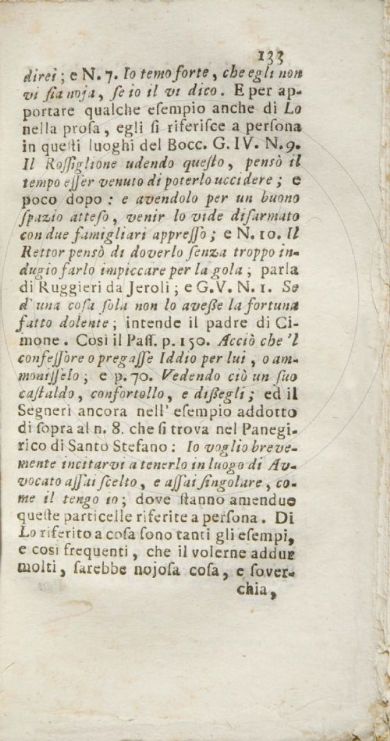 133
direi; e N. 7. Io temo forte, che egli non
vi sia noja, se io il vi dico. E per ap-
portare qualche esempio anche di Lo
nella prosa, egli si riferisce a persona
in questi luoghi del Bocc. G. IV. N. 9.
Il Rossiglione udendo questo, pensò il
tempo esser venuto di poterlo uccidere; e
poco dopo: e avendolo per un buono
spazio atteso, venir lo vide disarmato
con due famigliari appresso; e N. 10. Il
Rettor pensò di doverlo senza troppo in-
dugio farlo impiccare per la gola; parla
di Ruggieri da Jeroli; e G. V. N. 1. Se
d' una cosa sola non lo avesse la fortuna
fatto dolente; intende il padre di Ci-
mone. Così il Pass. p. 150. Acciò che 'l
confessore o pregasse Iddio per lui, o am-
monisselo; e p. 70. Vedendo ciò un suo
castaldo, confortollo, e dissegli; ed il
Segneri ancora nell' esempio addotto
di sopra al n. 8. che si trova nel Panegi-
rico di Santo Stefano: Io voglio breve-
mente incitarvi a tenerlo in luogo di Av-
vocato assai scelto, e assai singolare, co-
me il tengo io; dove stanno amendue
queste particelle riferite a persona. Di
Lo riferito a cosa sono tanti gli esempi,
e così frequenti, che il volerne addur
molti, sarebbe nojosa cosa, e sover-
chia,